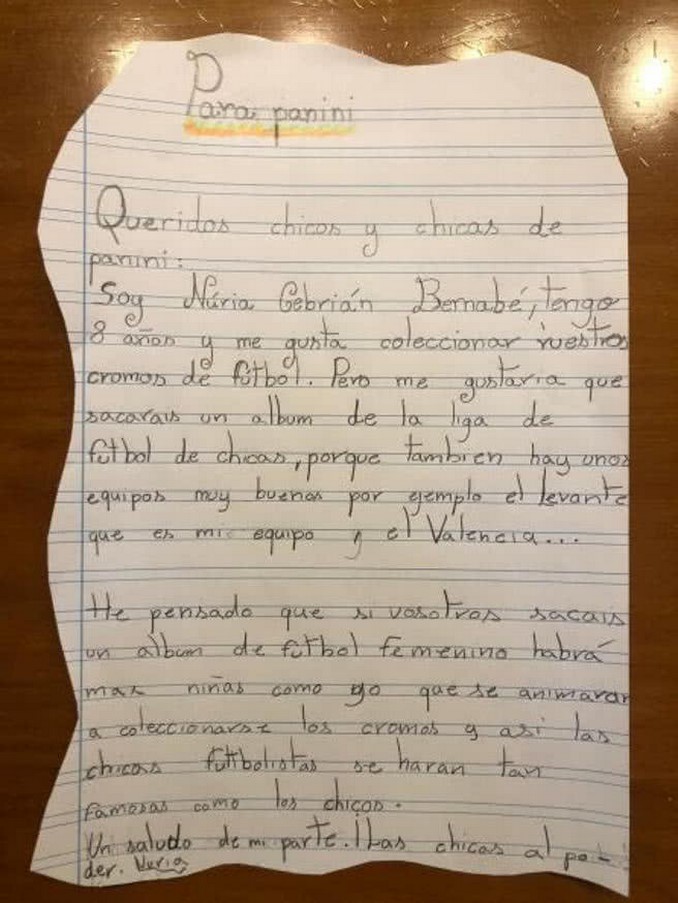 Para panini
Queridos chicos y chicas de
panini:
Soy Núria Cebrián Bernabé, tengo
8 años y me gusta coleccionar vuestros
cromos de fútbol. Pero me gustaria que
sacarais un album de la liga de
futbol de chicas, porque tambien hay unos
equipos muy buenos por ejemplo el levante
que es mi equipo y el Valencia...
He pensado que si vosotros sacais
un album de fútbol femenino habrá
mas niñas como yo que se animaran
a coleccionarse los cromos y asi las
chicas futbolistas se haran tan
famosas como los chicos.
Un saludo de mi parte. ¡Las chicas al po-
der. Nuria